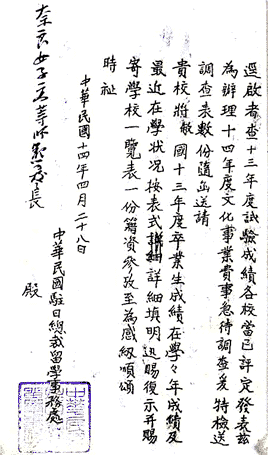 逕啟者查十三年度試驗成績各校當已評定發表茲
為辦理十四年度文化事業貴事急待調查茲特檢送
調查表數份隨函送請
貴校將敝國十三年度卒業生成績在學々年成績及
最近在學狀況按表式詳細詳細填明迅賜復示并賜
寄學校一覽表一份籍資參攷至為感級順頌
時祉
中華民國十四年四月二十八日
中華民國駐日總裁留學事務處
奈良女子高等師範校長
殿